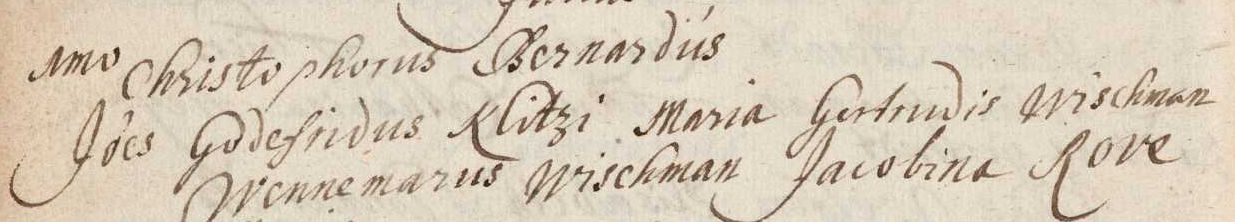 1mo Christophorus Bernardús
Jóes Godefridus Klitzi Maria Gertrudis Wischman
Wennemarus Wischman Jacobina Rove